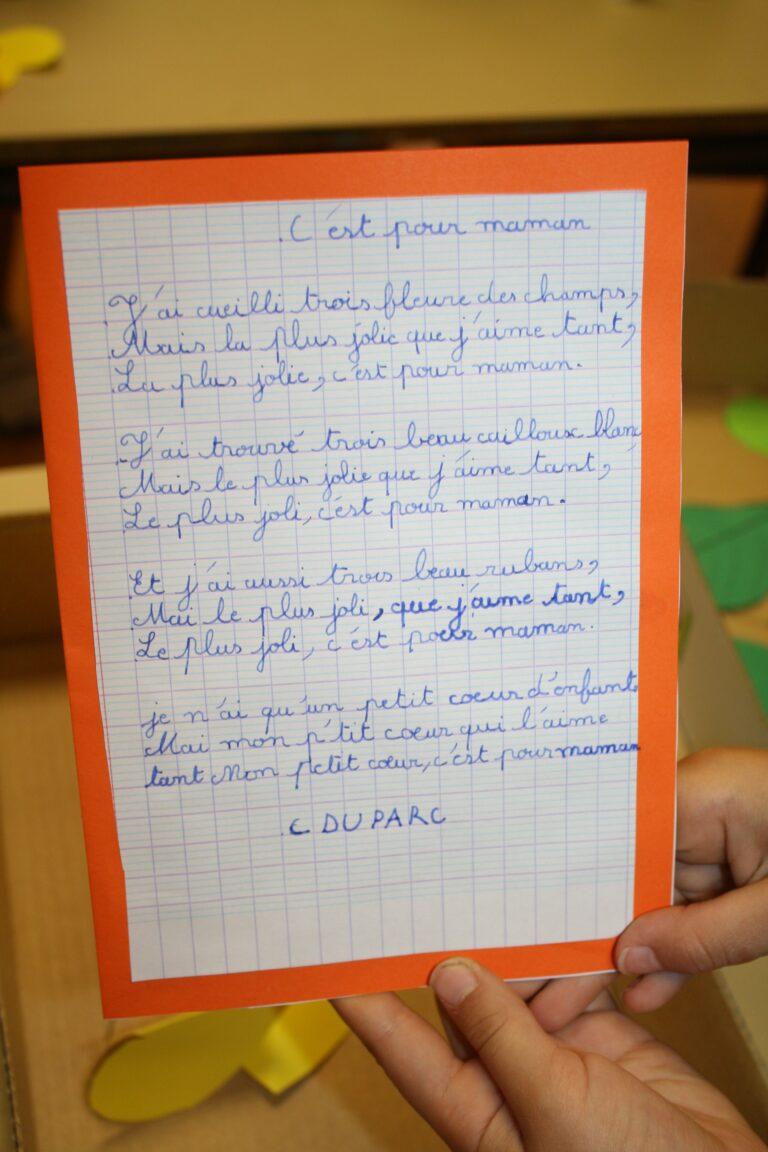 C'est pour maman
J'ai cueilli trois fleure des champs,
Mais la plus jolie que j'aime tant,
La plus jolie, c'est pour maman.
J'ai trouvé trois beau cailloux blanc
Mais le plus jolie que j'aime tant,
Le plus joli, c'est pour maman.
Et j'ai aussi trois beau rubans,
Mai le plus joli, que j'aime tant,
Le plus joli, c'est pour maman.
je n'ai qu'un petit coeur d'enfant
Mai mon p'tit coeur qui l'aime
tant Mon petit cœur, c'est pour maman
C DUPARC